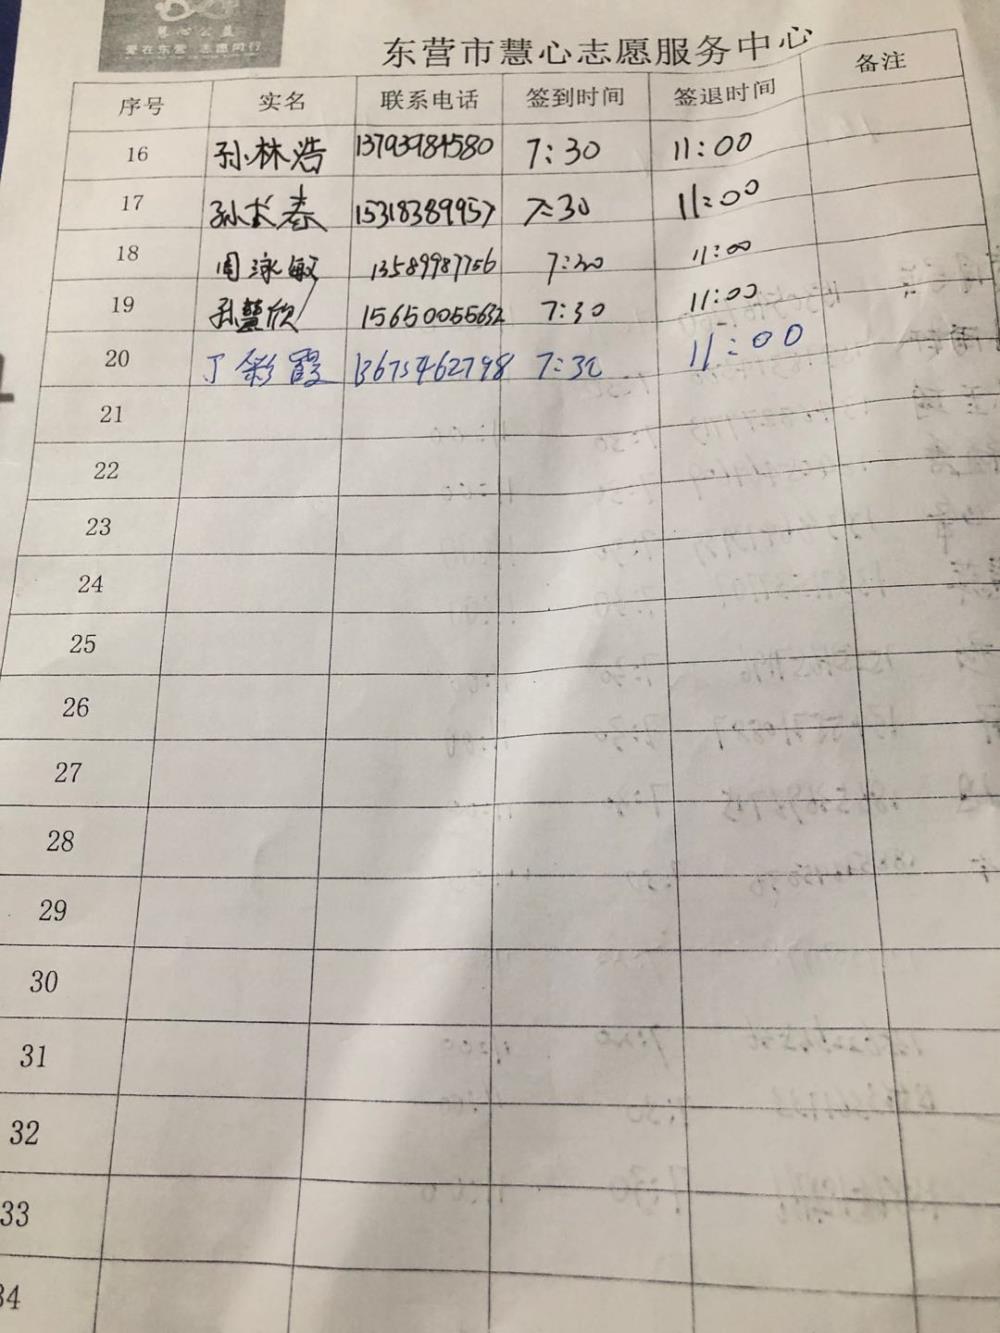 慧心公益
爱在东营 志愿同行
东营市慧心志愿服务中心
序号 实名 联系电话 签到时间 签退时间 备注
16 孙林浩 13793984580 7:30 11:00
17 孙长春 15318389957 7:30 11:00
18 周泳敏 13589987756 7:30 11:00
19 孙慧欣 15650055632 7:30 11:00
20 丁彩霞 13675462798 7:30 11:00
21
22
23
24
25
26
27
28
29
30
31
32
33
34